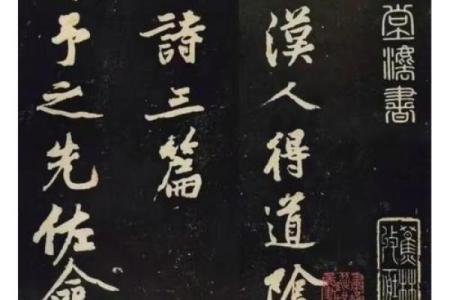 堂灋書
蕉林
漢人得道陰
詩三篇
予之先佐命